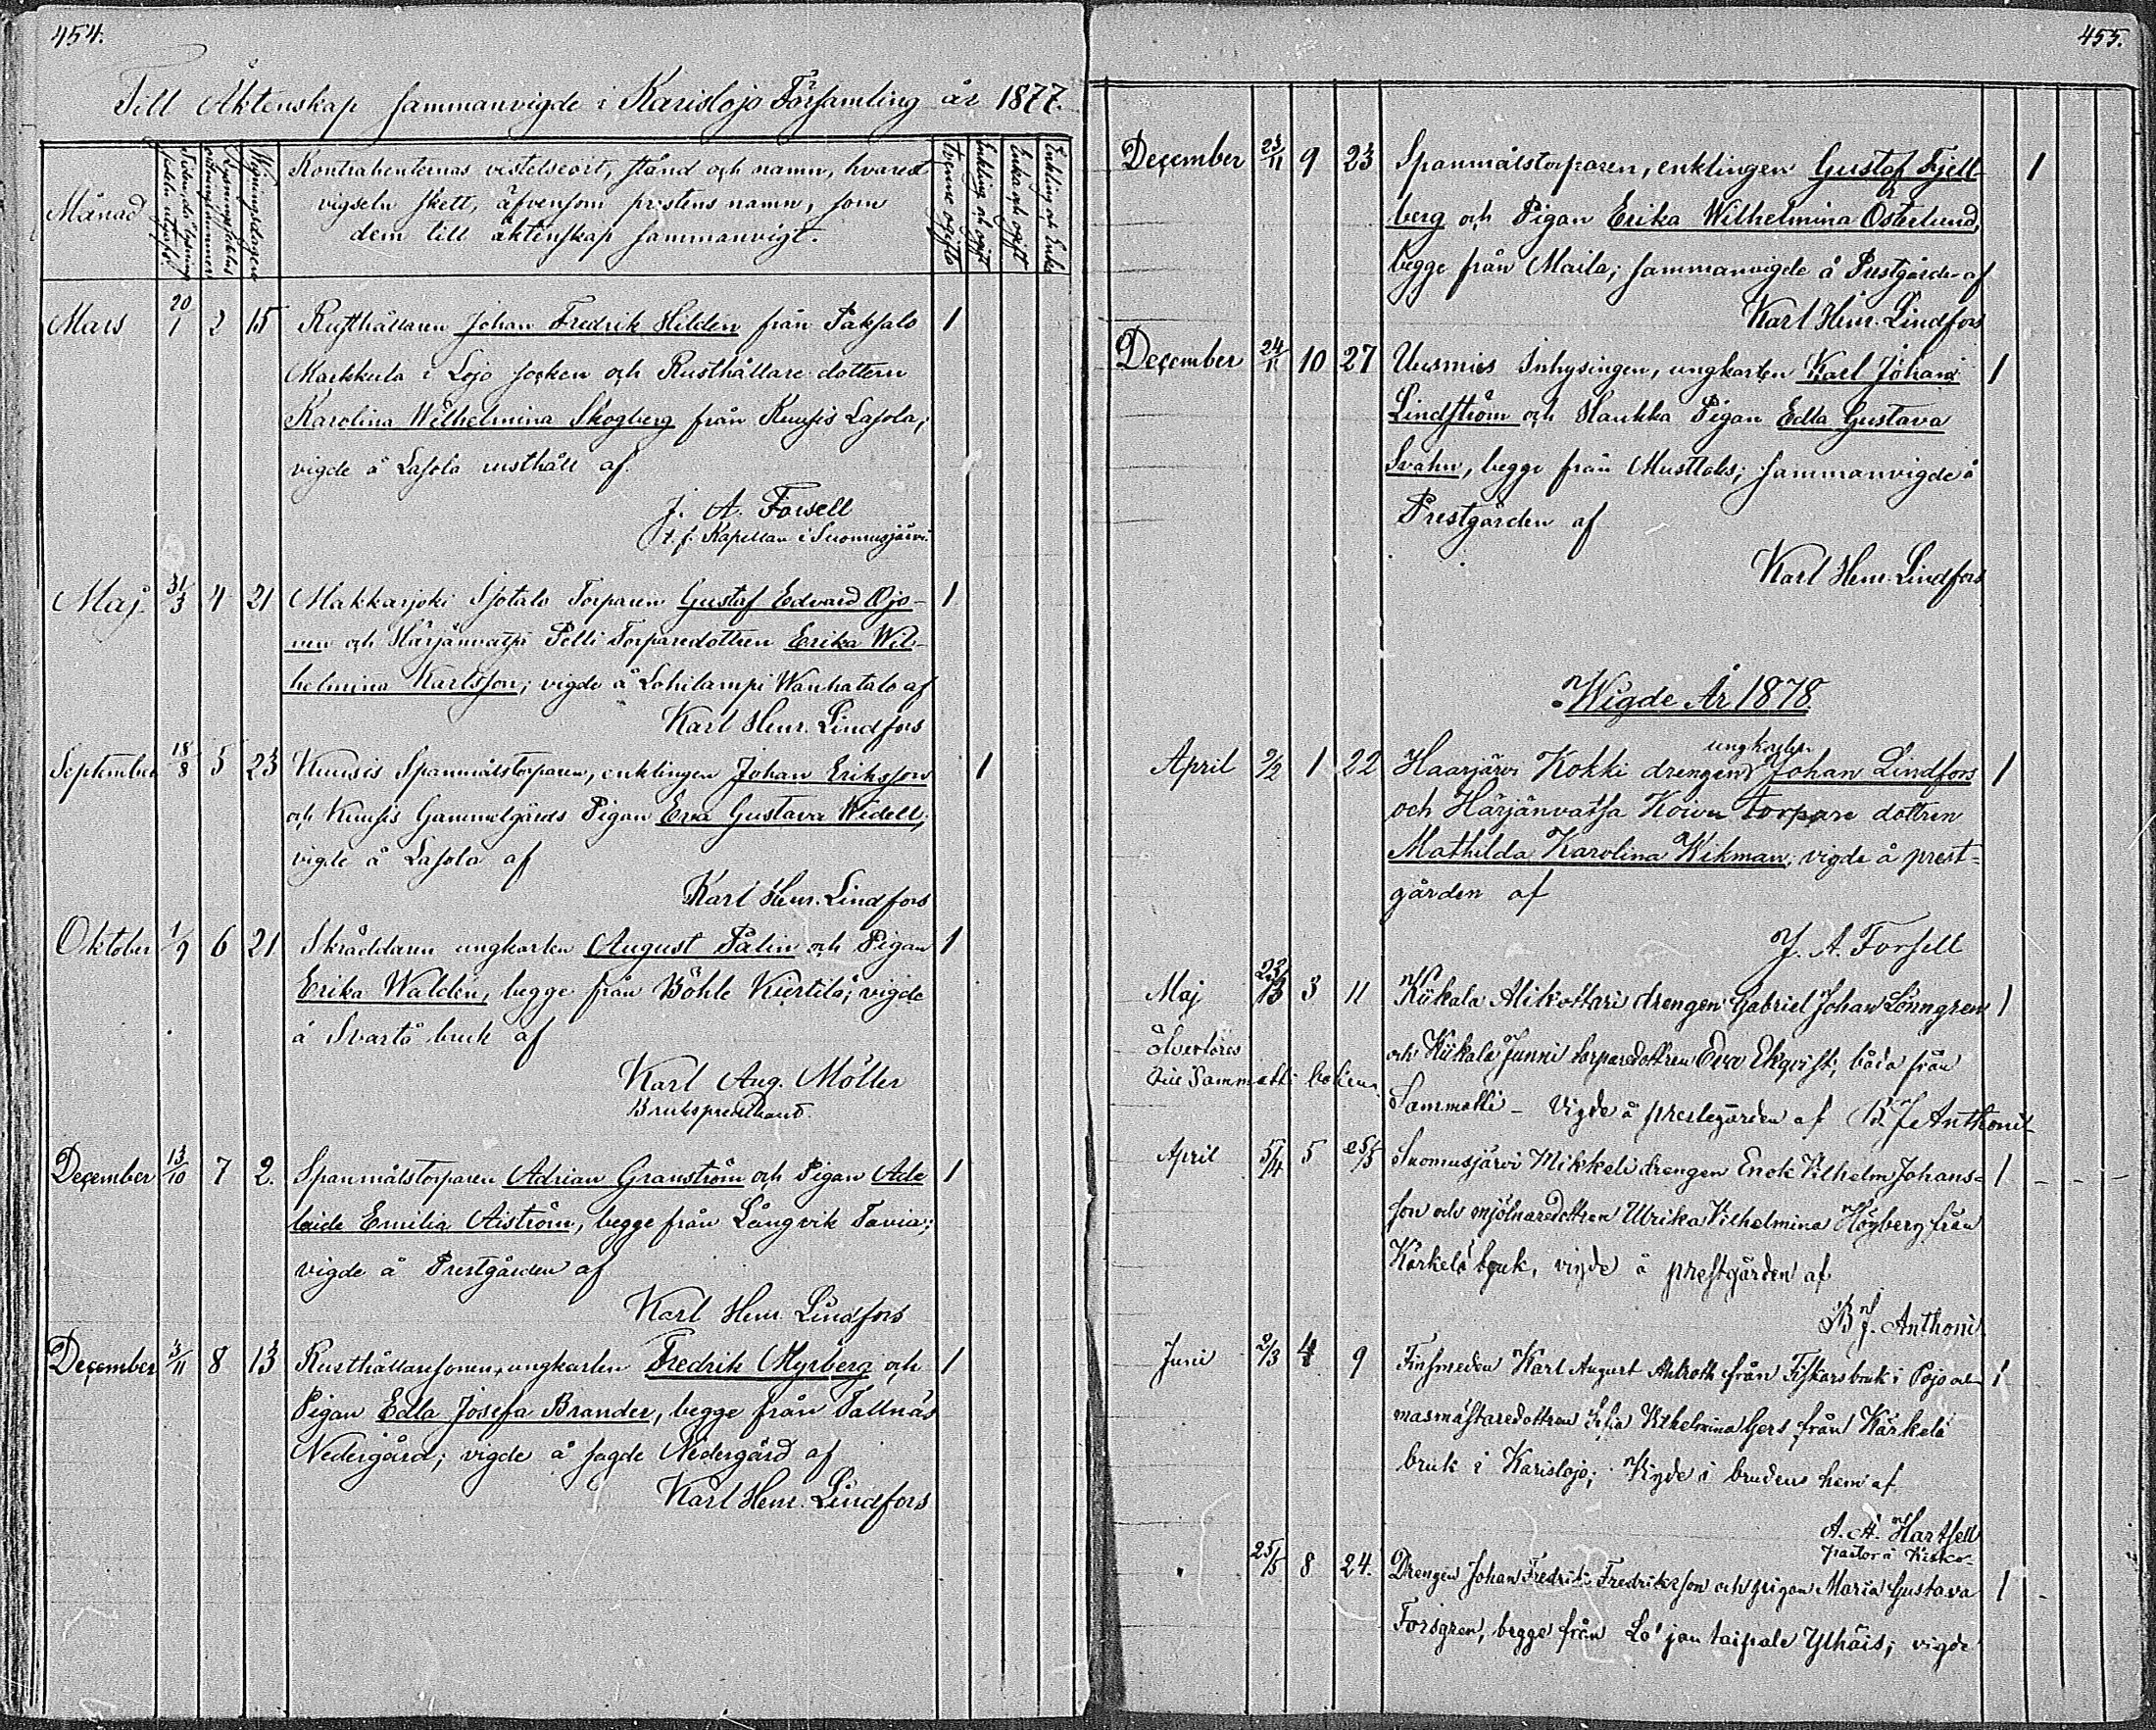 454.
Till Äktenskap sammanvigde i Karislojo Församling år 1877.
Månad
Wigningsdagen
Kontrahenternas vistelseort, stånd och namn, hvarest
vigseln skett, äfvensom prestens namn, som
dem till äktenskap sammanvigt.
tvenne ogifta
Enkling och ogift
Enka och ogift
Enkling och Enka
Mars 20/1 2 15 Rusthållaren Johan Fredrik Hilden från Paksalo 1
Markkula i Lojo socken och Rusthållare dottern
Karolina Wilhelmina Skogberg från Kuusis Lasola;
vigde å Lasola rusthåll af
J. A. Forsell
t. f. Kapellan i Suomusjärvi.
Maj. 31/3 4 21 Makkarjoki Sjotalo Torparen Gustaf Edvard Ojo- 1
nen och Härjänvatsa Pelli Torparedottren Erika Wil-
helmina Karlsson; vigde å Lohilampi Wanhatalo af
Karl Henr. Lindfors
September 18/8 5 23 Kuusis Spanmålstorparen, enklingen Johan Eriksson 1
och Kuusis Gammelgårds Pigan Eva Gustava Widell;
vigde å Lasola af
Karl Henr. Lindfors
Oktober 1/9 6 21 Skräddaren ungkarlen August Palin och Pigan 1
Erika Walden, begge från Böhle Kiertilä; vigde
å Svartå bruk af
Karl Aug. Möller
Brukspredikant.
December 13/10 7 2. Spanmålstorparen Adrian Granström och Pigan Ade 1
laide Emilia Aiström, begge från Långvik Tavia;
vigde å Prestgården af
Karl Henr. Lindfors
December 3/11 8 13 Rusthållaresonen, ungkarlen Fredrik Myrberg och 1
Pigan Edla Josefa Brander, begge från Tallnäs
Nedergård; vigde å sagde Nedergård af
Karl Henr. Lindfors
455.
December 23/11 9 23 Spanmålstorparen, enklingen Gustaf Fjell- 1
berg och Pigan Erika Wilhelmina Österlund,
begge från Maila; sammanvigde å Prestgården af
Karl Henr. Lindfors
December 24/11 10 27 Uusmies Inhysingen, ungkarlen Karl Johan 1
Lindström och Haukka Pigan Edla Gustava
Svahn, begge från Musttola; sammanvigde å
Prestgården af
Karl Henr. Lindfors
Wigde År 1878.
ungkarlen
April 9/2 1 22 Haarjärvi Kokki drengen Johan Lindfors 1
och Härjänvatsa Koivu torpare dottren
Mathilda Karolina Wikman; vigde å prest-
gården af
J. A. Forsell
Maj 23/3 3 11 Kiikala Alikostari drengen Gabriel Johan Lönngren 1
och Kiikala Junni torparedottren Eva Ekqvist, båda från
Sammatti - Vigde å prestegården af B. J. Anthoni
April 5/4 5 25/5 Suomusjärvi Mikkeli drengen Enok Vilhelm Johans- 1
son och mjölnaredottren Ulrika Vilhelmina Högberg från
Kärkelä bruk, vigde å prestgården af
B. J. Anthoni
Juni 2/3 4 9 Finsmeden Karl August Ahlroth från Fiskars bruk i Pojo och 1
masmästaredottren Sofia Vilhelmina Gers från Kärkelä
bruk i Karislojo; Vigde i brudens hem af
A. A. Hartsell
pastor i Kisko
25/5 8 24. Drengen Johan Fredrik Fredriksson och pigan Maria Gustava 1
Forsgren, begge från Lojantaipale Ylhäis; vigde